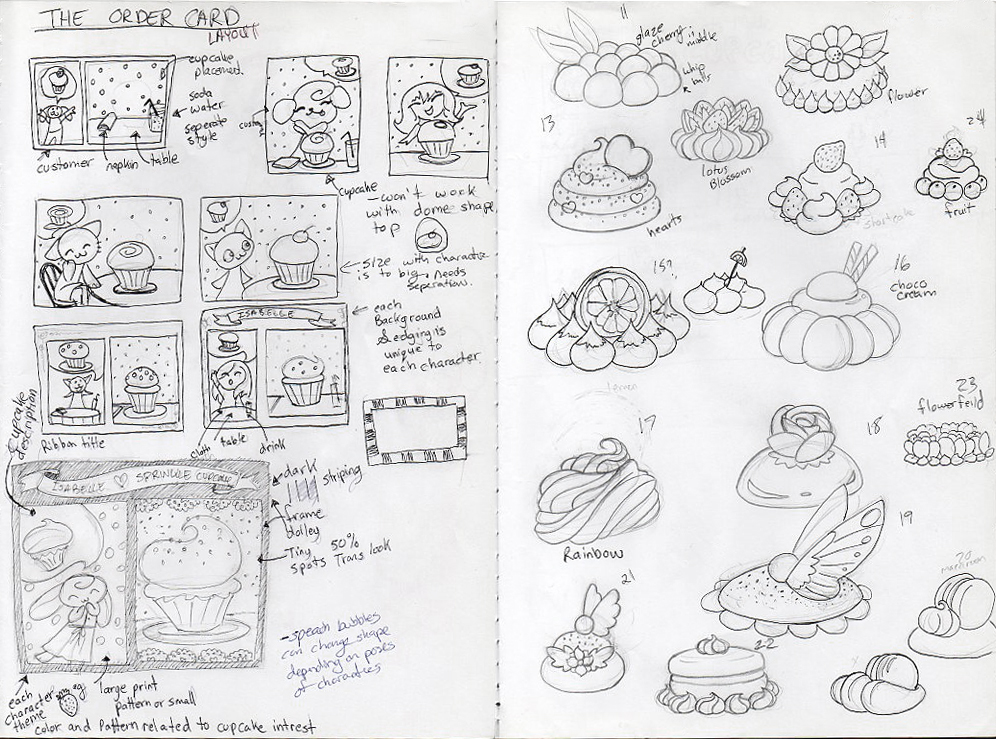 THE ORDER CARD
LAYOUT
cupcake
placement
soda
water
seperate
style
customer
napkin
table
cupcake
won't work
with dome shape
top
size with character
is to big, needs
seperation.
ISABELLE
each
Background
& edging is
unique to
each character
cupcake
description
Ribbon title
cloth
table
drink
ISABELLE ♡ SPRINKLE CUPCAKE
dark
striping
frame
dolley
Tiny 50%
spots Trans look
-speach bubbles
can change shape
depending on poses
of characters
each
character
theme
eg.
large print
pattern or small
color and Pattern related to cupcake intrest
11
glaze
cherry in
middle
whip
balls
flower
13
lotus
Blossom
hearts
14
shortcake
24
fruit
15?
lemon
16
choco
cream
17
Rainbow
18
23
flowerfeild
19
20
21
22